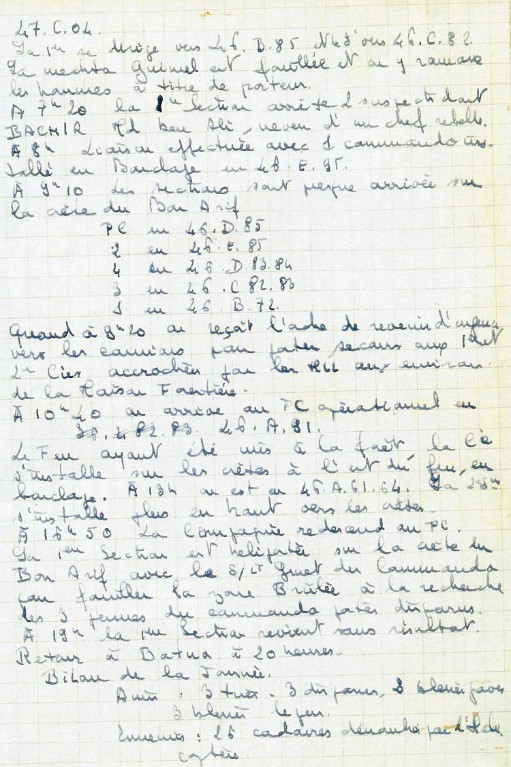 47.C.04.
La 1ère se dirige vers 46.D.85 N°3 vers 46.C.82.
La mechta Guimel est fouillée et on y ramasse
les hommes à titre de porteur.
A 7h20 la 1ère Section arrête 2 suspects dont
BACHIR Md ben Ali, neveu d'un chef rebelle.
A 8h Liaison effectuée avec 1 commando ins-
tallé en Bouclage en 46.E.95.
A 9h10 Les sections sont presque arrivée sur
la crête du Bou Arif
PC en 46.D.85
2 en 46.E.85
4 en 46 D.83.84
3 en 46.C 82.83
1 en 46.B.72.
Quand à 9h20 on reçoit l'ordre de revenir d'urgence
vers les camions pour porter secours aux 1ère et
2e Cies accrochées par les HLL aux environs
de la Maison Forestière.
A 10h40 on arrive au PC opérationnel en
46.A.91.
Le Feu ayant été mis à la forêt la Cie
s'installe sur les crêtes à l'est du feu, en
bouclage. A 13h on est en 46.A.61.64. La
s'installe plus en haut vers les crêtes.
A 16h50 La Compagnie redescend au PC.
La 1ère Section est héliportée sur la crête du
Bou Arif avec le S/Lt du Commando
pour fouiller la zone Brûlée à la recherche
les 3 du commando portés disparus.
A 19h la 1ère Section revient sans résultat.
Retour à Batna à 20 heures.
Bilan de la Journée.
Amis : 3 tués. 3 disparus, 3 blessés graves
3 blessés légers.
Ennemis : 26 cadavres dénombrés par l'